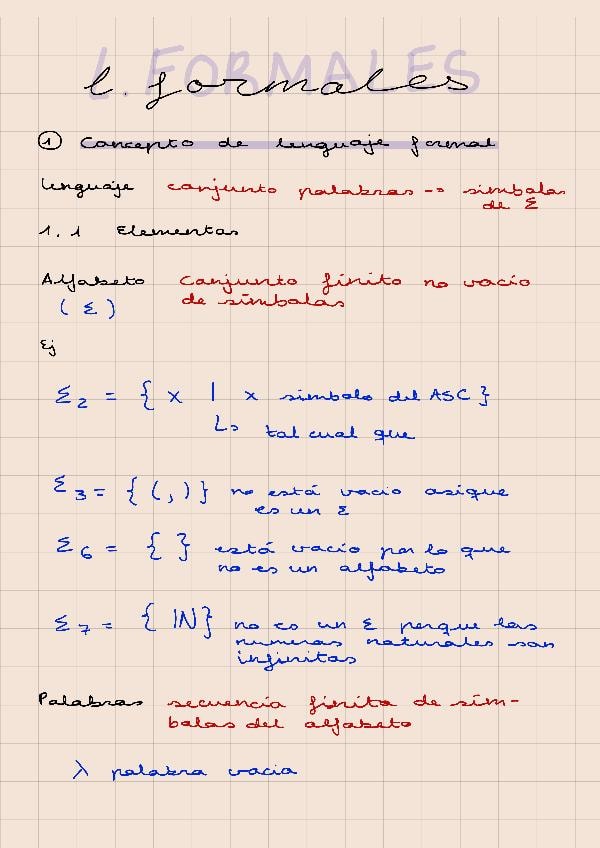 L. FORMALES
l. formales
① Concepto de lenguaje formal
Lenguaje conjunto palabras -> simbolos
de Σ
1.1 Elementos
Alfabeto conjunto finito no vacío
(Σ) de símbolos
Ej
Σ2 = { x | x simbolo del ASC }
↳ tal cual que
Σ3 = { (, ) } no está vacio asique
es un Σ
Σ6 = { } está vacío por lo que
no es un alfabeto
Σ7 = { ℕ } no es un Σ porque los
numeros naturales son
infinitos
Palabras secuencia finita de sím-
bolos del alfabeto
λ palabra vacia